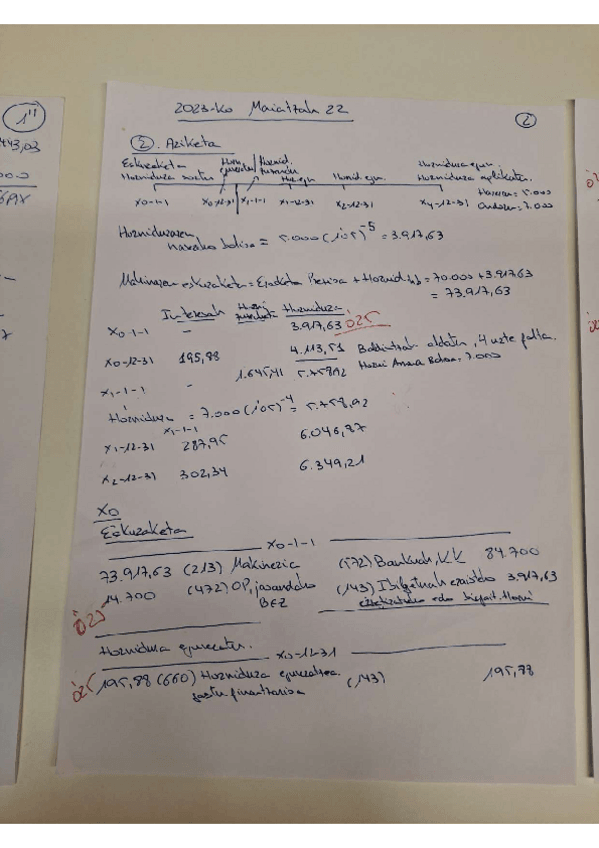 1"
443,03
2023-ko Maiatzak 22
2
2. Ariketa
Eskuraketa
Hornidura sortu
Hornidura egun.
Hornidura aplikatu.
x0-1-1 x0-12-31 x1-1-1 x1-12-31 x2-12-31 x4-12-31
Hasieran = 5.000
Ondoren = 7.000
Horniduraren
hasierako balioa = 5.000 (1'05)^-5 = 3.917,63
Makinaren eskuraketa = Erosketa Prezioa + Hornid = 70.000 + 3.917,63
= 73.917,63
Interesak Hornidura
x0-1-1 - 3.917,63 0'25
x0-12-31 195,88 4.113,51 Baldintzak aldatu, 4 urte falta.
x1-1-1 - 1.645,41 5.758,92 7.000
Hornidura x1-1-1 = 7.000 (1'05)^-4 = 5.758,92
x1-12-31 287,95 6.046,87
x2-12-31 302,34 6.349,21
X0
Eskuraketa
x0-1-1
73.917,63 (213) Makineria (572) Bankuak, KK 84.700
14.700 (472) OP, jasandako BEZ (143) Ibilgetuak eraisteko 3.917,63
0'25
Hornidura eguneratu.
x0-12-31
0'25 195,88 (660) Hornidura eguneratzea. (143) 195,78
gastu finantzarioa